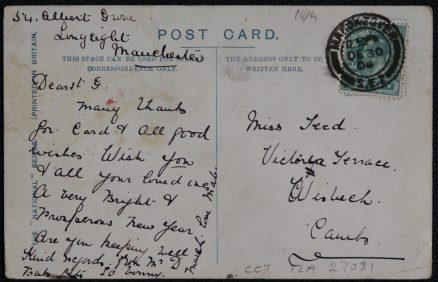 54, Albert Grove
Longsight
Manchester
POST CARD.
THIS SPACE CAN BE USED FOR
CORRESPONDENCE ONLY.
THE ADDRESS ONLY TO BE
WRITTEN HERE.
THE "NATIONAL" SERIES
PRINTED IN BRITAIN.
Dearest G.
Many thanks
for Card & All good
wishes Wish you
& all your loved ones
A very Bright &
Prosperous New Year
Are you keeping well
Kind regards
Much love
Miss Teed.
Victoria Terrace,
Wisbech,
Cambs
CCT TLA 27081